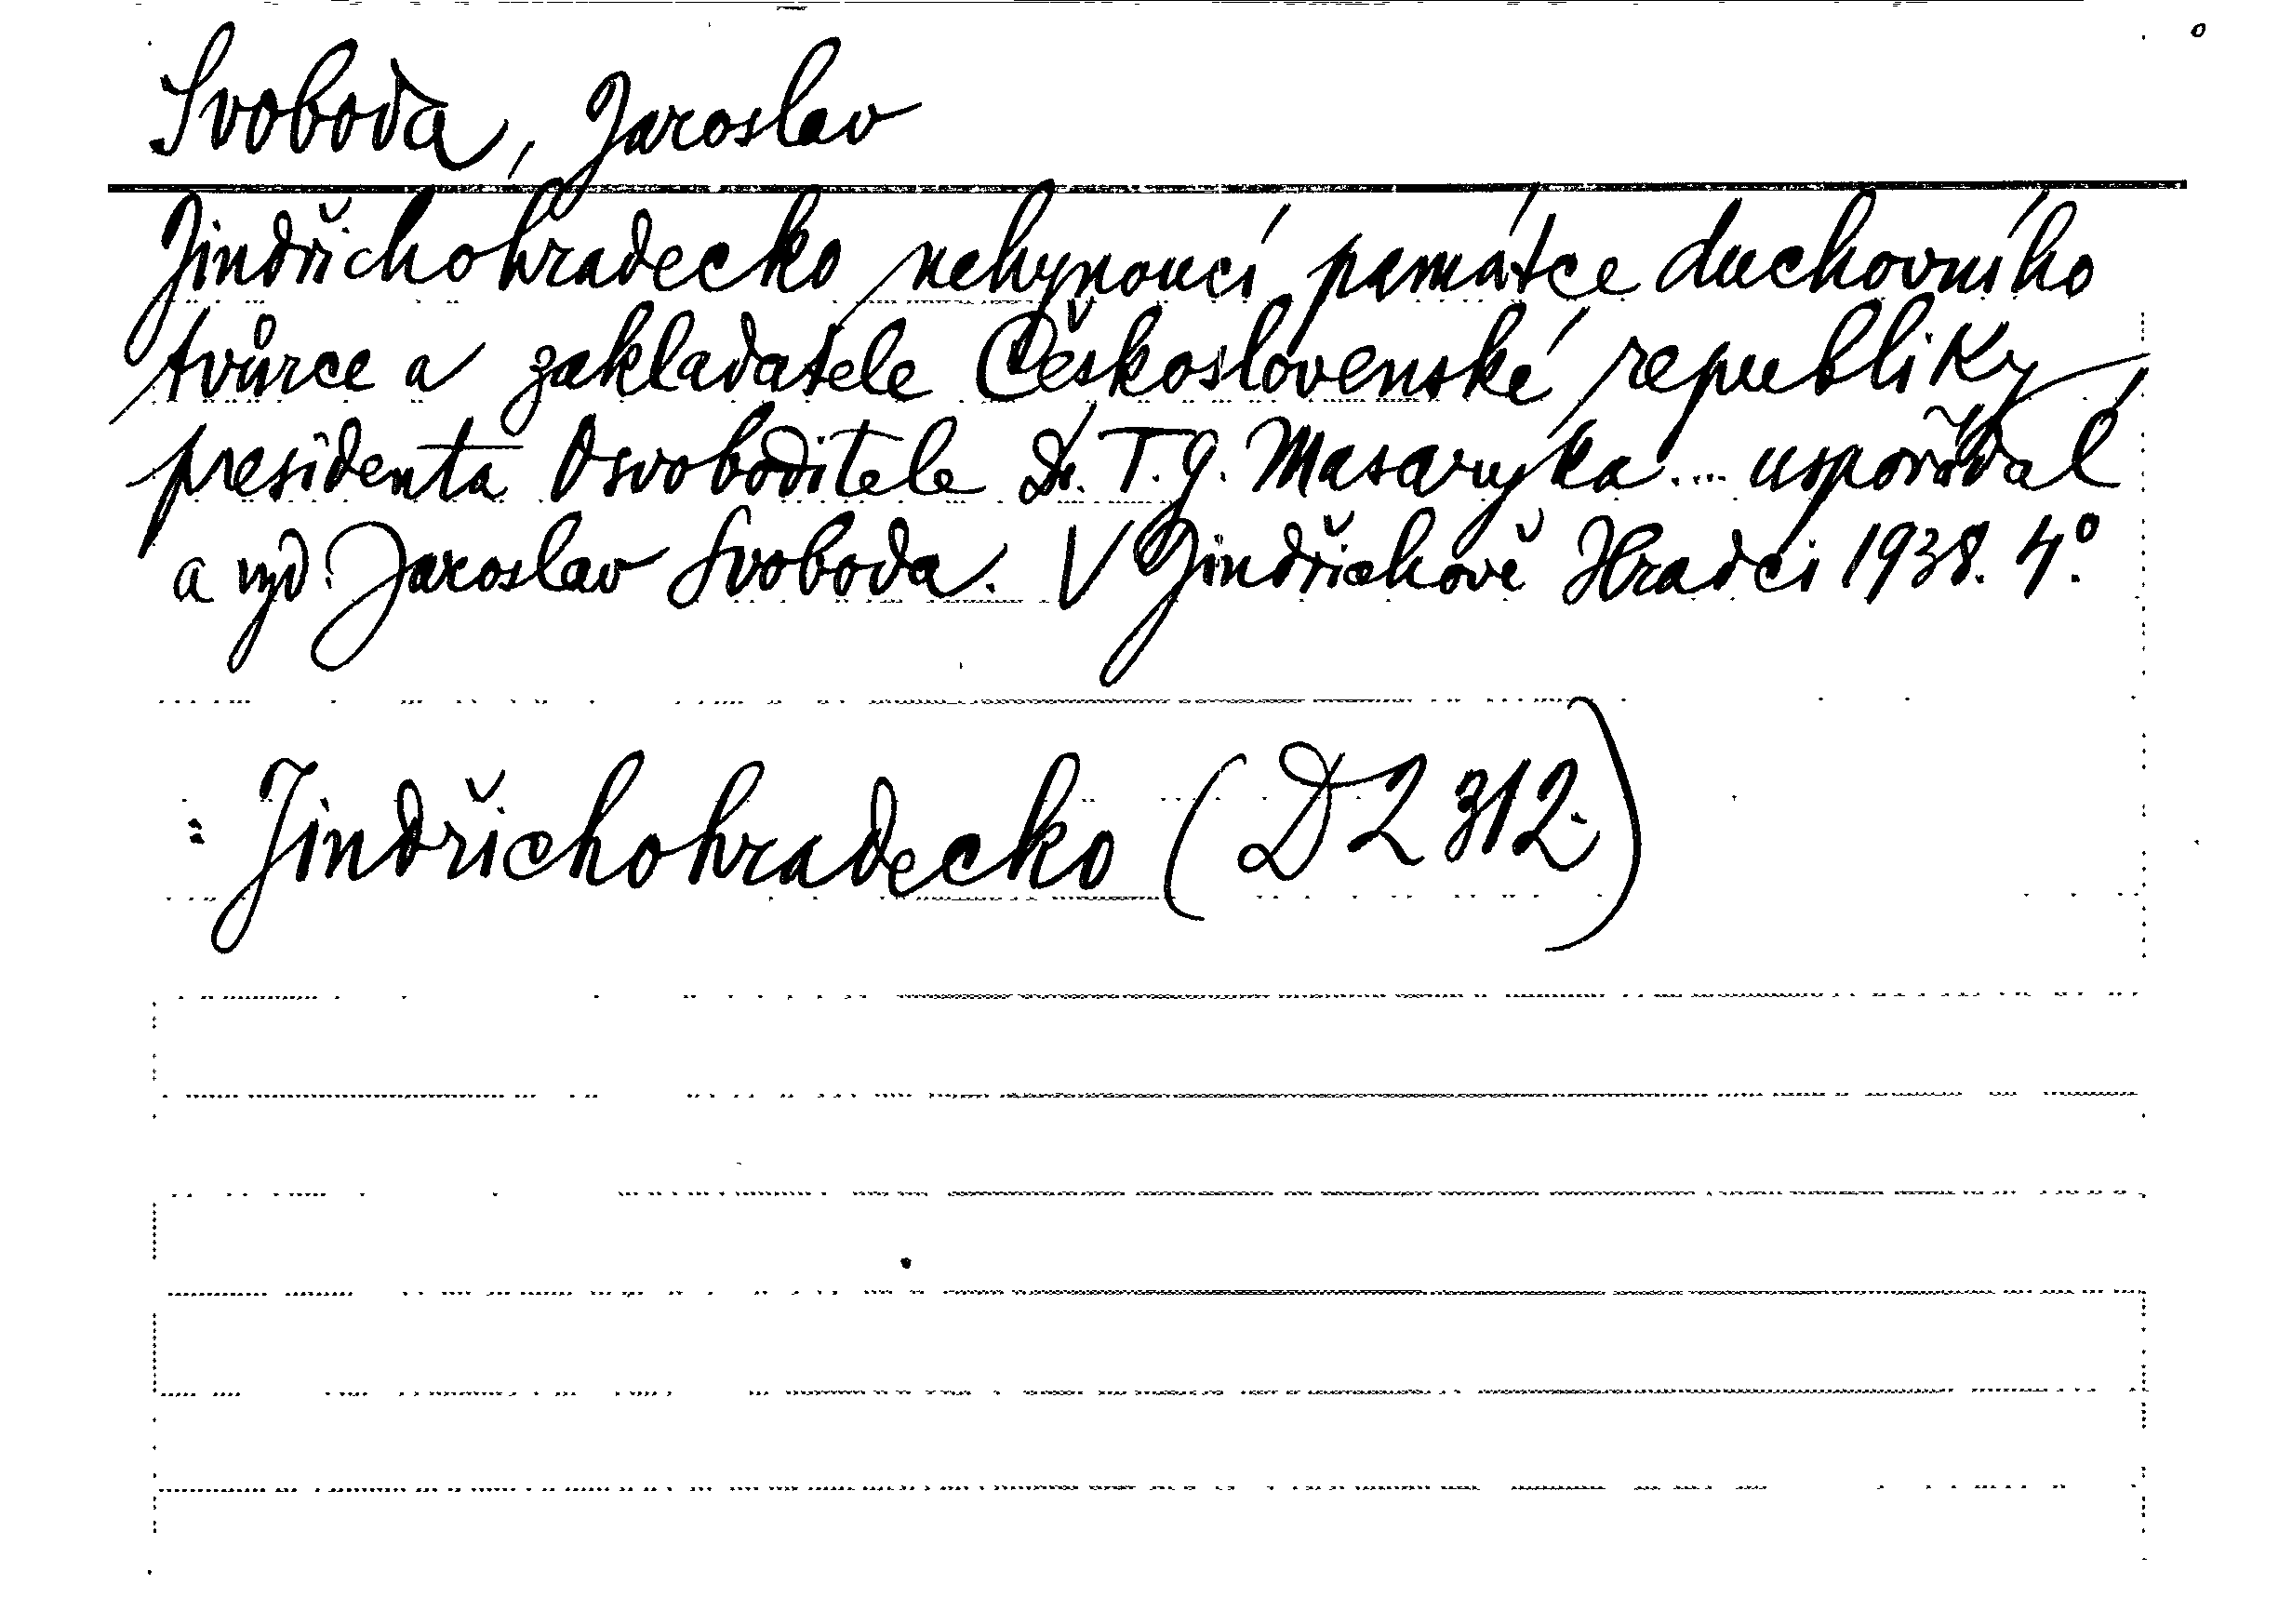 Svoboda, Jaroslav
Jindřichohradecko nehynoucí památce duchovního
tvůrce a zakladatele Československé republiky
presidenta Osvoboditele Dr. T. G. Masaryka... uspořádal
a vyd. Jaroslav Svoboda. V Jindřichově Hradci 1938. 4°.
: Jindřichohradecko (D 2 312.)